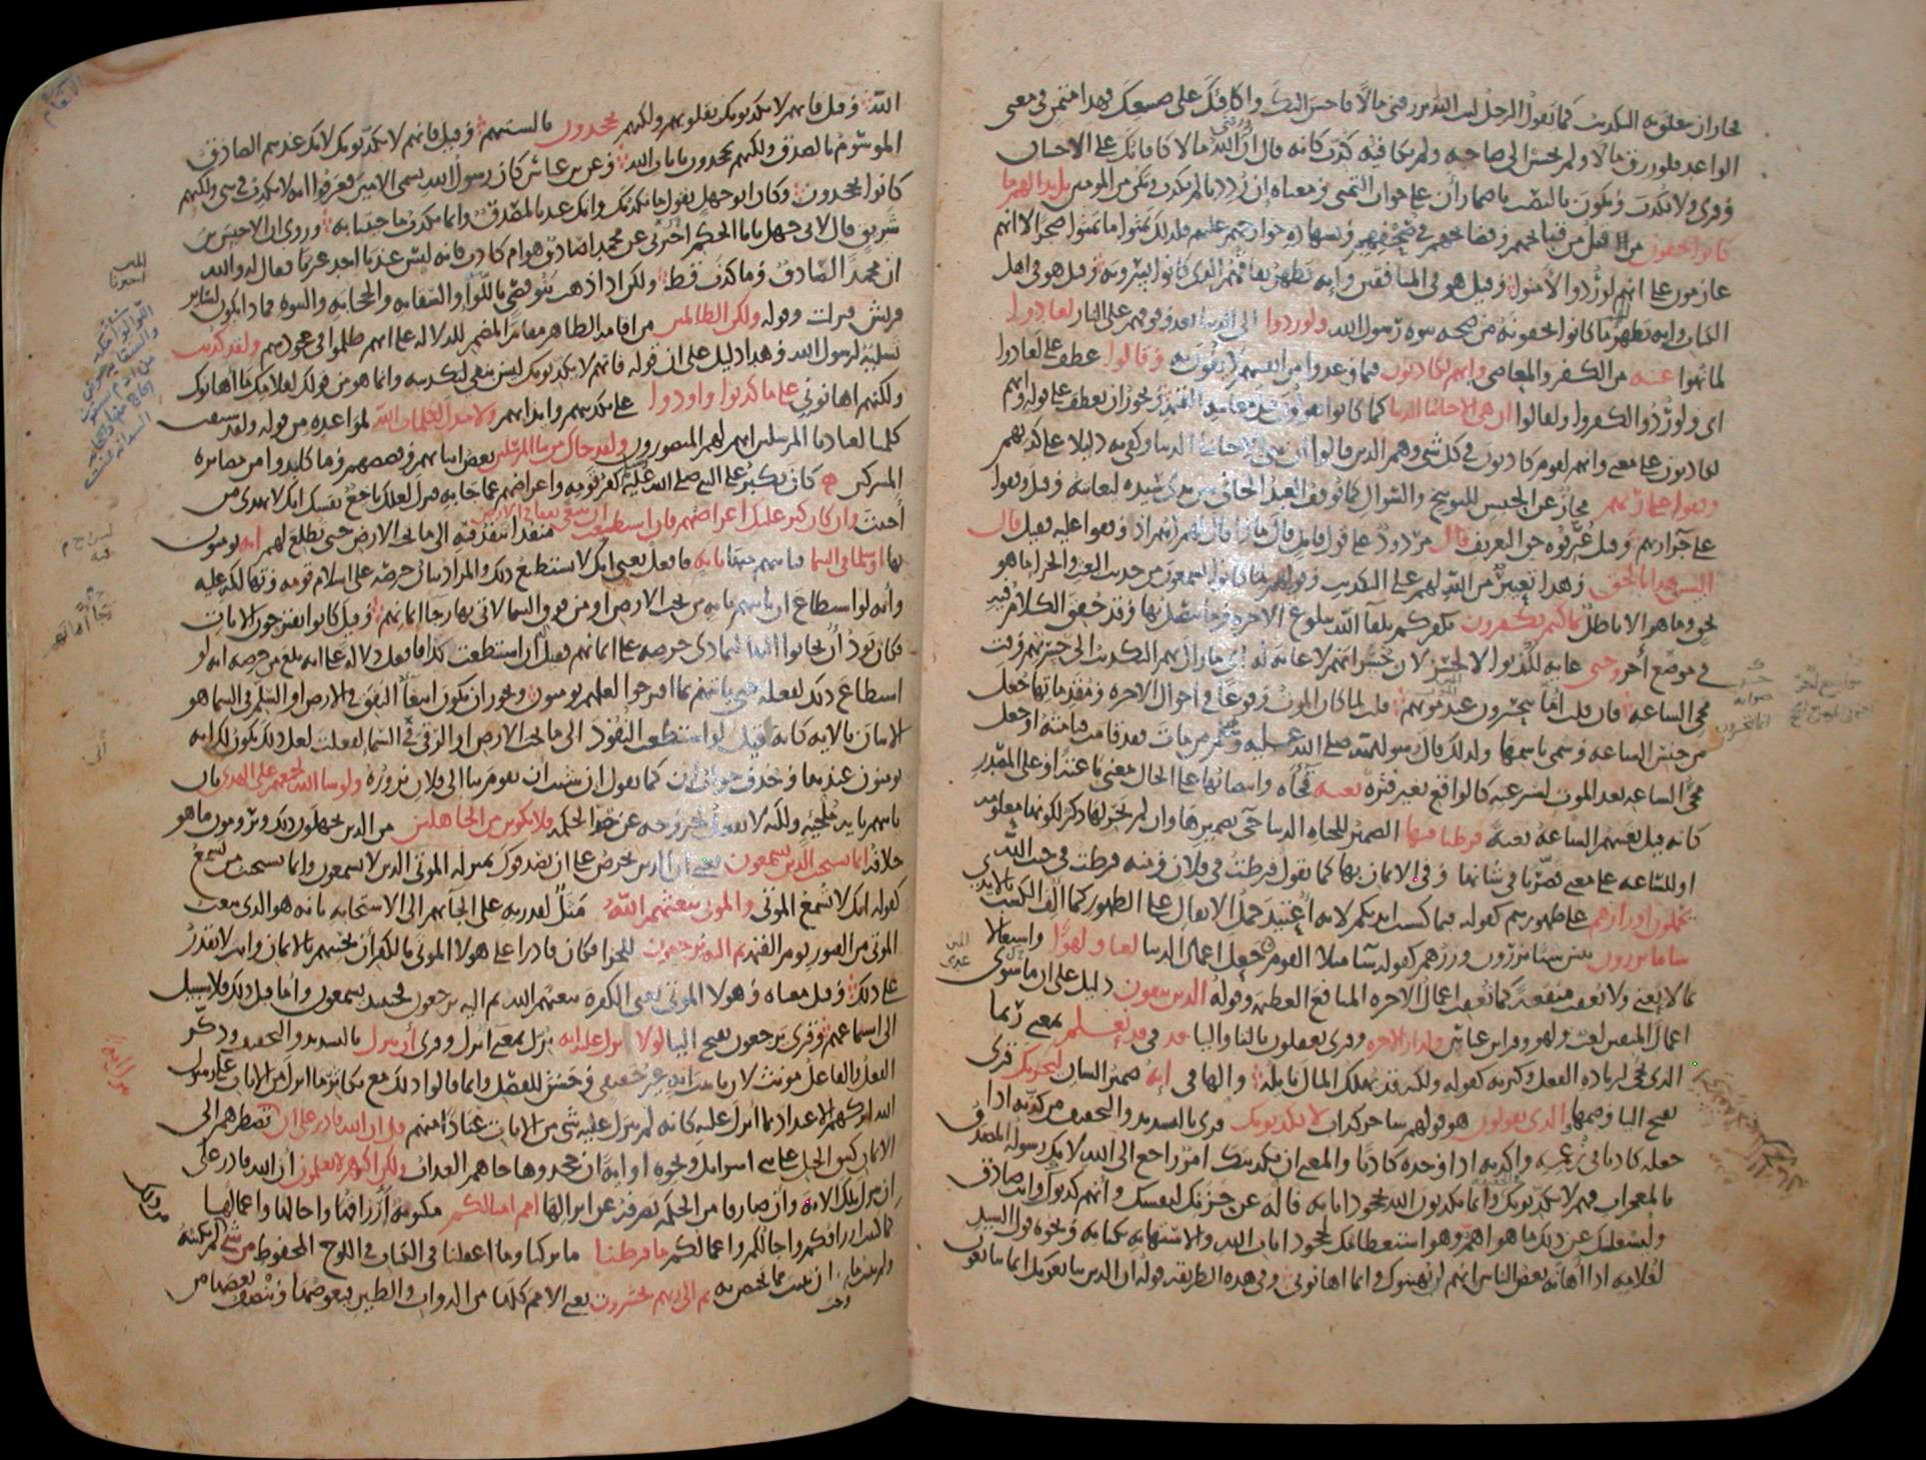 يجاز أن يتعلق به التكذيب كما يقول الرجل ليت الله يرزقني مالا فأحسن إليك وأكافئك على صنيعك فهذا متمن في معنى
الواعد فلو رزق مالا ولم يحسن إلى صاحبه ولم يكافئه كذب كأنه قال إن رزقني الله مالا كافأتك على الإحسان
وقرئ ولا نكذب ونكون بالنصب بإضمار أن على جواب التمني ومعناه إن رددنا لم نكذب ونكن من المؤمنين بل بدا لهم ما
كانوا يخفون من قبل من قبائحهم وفضائحهم في صحفهم وبشهادة جوارحهم عليهم فلذلك تمنوا ما تمنوا ضجرا لا أنهم
عازمون على أنهم لو ردوا لآمنوا وقيل هو في المنافقين وإنه يظهر نفاقهم الذي كانوا يسرونه وقيل هو في أهل
الكتاب وأنه يظهر لهم ما كانوا يخفونه من صحة نبوة رسول الله ولو ردوا إلى الدنيا بعد وقوفهم على النار لعادوا
لما نهوا عنه من الكفر والمعاصي وإنهم لكاذبون فيما وعدوا من أنفسهم لا يفون به وقالوا عطف على لعادوا
أي ولو ردوا لكفروا ولقالوا إن هي إلا حياتنا الدنيا كما كانوا يقولون قبل معاينة القيمة ويجوز أن يعطف على قوله وإنهم
لكاذبون على معنى وإنهم لقوم كاذبون في كل شيء وهم الذين قالوا إن هي إلا حياتنا الدنيا وكفى به دليلا على كذبهم
وقفوا على ربهم مجاز عن الحبس للتوبيخ والسؤال كما يوقف العبد الجاني بين يدي سيده ليعاتبه وقيل وقفوا
على جزاء ربهم وقيل عرفوه حق التعريف قال مردود على قول قائل قال ماذا قال لهم ربهم إذ وقفوا عليه فقيل قال
أليس هذا بالحق وهذا تعيير من الله لهم على التكذيب وقولهم لما كانوا يسمعون من حديث البعث والجزاء ما هو
بحق وما هو إلا باطل بما كنتم تكفرون بكفركم بلقاء الله ببلوغ الآخرة وما يتصل بها وقد حقق الكلام فيه
في موضع آخر وحتى غاية لكذبوا لا لخسر لأن خسرانهم لا غاية له أي ما زال بهم التكذيب إلى حسرتهم وقت
مجيء الساعة فإن قلت أما يتحسرون عند موتهم قلت لما كان الموت وقوعا في أحوال الآخرة ومقدماتها جعل
من جنس الساعة وسمي باسمها ولذلك قال رسول الله صلى الله عليه وسلم من مات فقد قامت قيامته أو جعل
مجيء الساعة بعد الموت لسرعته كالواقع بغير فترة بغتة فجأة وانتصابها على الحال بمعنى باغتة أو على المصدر
كأنه قيل بغتتهم الساعة بغتة فرطنا فيها الضمير للحياة الدنيا جيء بضميرها وإن لم يجر لها ذكر لكونها معلومة
أو للساعة على معنى قصرنا في شأنها وفي الإيمان بها كما تقول فرطت في فلان ومنه فرطت في جنب الله
يحملون أوزارهم على ظهورهم كقوله فبما كسبت أيديكم لأنه اعتيد حمل الأثقال على الظهور كما ألف الكسب بالأيدي
ساء ما يزرون بئس شيئا يزرون وزرهم كقوله ساء مثلا القوم جعل أعمال الدنيا لعبا ولهوا واشتغالا
بما لا يعني ولا يعقب منفعة كما تعقب أعمال الآخرة المنافع العظيمة وقوله للذين يتقون دليل على أن ما سوى
أعمال المتقين لعب ولهو وقرأ ابن عباس ولدار الآخرة وقرئ يعقلون بالتاء والياء قد في قد نعلم بمعنى ربما
الذي يجيء لزيادة الفعل وكثرته كقوله ولكنه قد يهلك المال نائله والهاء في إنه ضمير الشأن ليحزنك قرئ
بفتح الياء وضمها والذي يقولون هو قولهم ساحر كذاب لا يكذبونك قرئ بالتشديد والتخفيف من كذبه إذا
جعله كاذبا في زعمه وأكذبه إذا وجده كاذبا والمعنى أن تكذيبك أمر راجع إلى الله لأنك رسوله المصدق
بالمعجزات فهم لا يكذبونك وإنما يكذبون الله بجحود آياته فاله عن حزنك لنفسك وأنهم كذبوك وأنت صادق
وليشغلك عن ذلك ما هو أهم وهو استعظامك لجحود آيات الله والاستهانة بكتابه ونحوه قول السيد
لغلامه إذا أهانه بعض الناس إنهم لم يهينوك وإنما أهانوني وفي هذه الطريقة قوله إن الذين يبايعونك إنما يبايعون
الله وقيل فإنهم لا يكذبونك بقلوبهم ولكنهم يجحدون بألسنتهم وقيل فإنهم لا يكذبونك لأنك عندهم الصادق
الموسوم بالصدق ولكنهم يجحدون بآيات الله وعن ابن عباس كان رسول الله يسمى الأمين فعرفوا أنه لا يكذب في شيء ولكنهم
كانوا يجحدون وكان أبو جهل يقول ما نكذبك وإنك عندنا لمصدق وإنما نكذب ما جئتنا به وروي أن الأخنس بن
شريق قال لأبي جهل يا أبا الحكم أخبرني عن محمد أصادق هو أم كاذب فإنه ليس عندنا أحد غيرنا فقال له والله
إن محمدا لصادق وما كذب قط ولكن إذا ذهب بنو قصي باللواء والسقاية والحجابة والنبوة فماذا يكون لسائر
قريش فنزلت وقوله ولكن الظالمين من إقامة الظاهر مقام المضمر للدلالة على أنهم ظلموا في جحودهم ولقد كذبت
تسلية لرسول الله وهذا دليل على أن قوله فإنهم لا يكذبونك ليس بنفي لتكذيبه وإنما هو من قولك لغلامك ما أهانوك
ولكنهم أهانوني على ما كذبوا وأوذوا على تكذيبهم وإيذائهم ولا مبدل لكلمات الله لمواعيده من قوله ولقد سبقت
كلمتنا لعبادنا المرسلين إنهم لهم المنصورون ولقد جاءك من نبإ المرسلين بعض أنبائهم وقصصهم وما كابدوا من مصابرة
المشركين كان يكبر على النبي صلى الله عليه كفر قومه وإعراضهم عما جاء به فنزل لعلك باخع نفسك إنك لا تهدي من
أحببت وإن كان كبر عليك إعراضهم فإن استطعت أن تبتغي نفقا في الأرض منفذا تنفذ فيه إلى ما تحت الأرض حتى تطلع لهم آية يؤمنون
بها أو سلما في السماء فتأتيهم منها بآية فافعل يعني إنك لا تستطيع ذلك والمراد بيان حرصه على إسلام قومه وتهالكه عليه
وأنه لو استطاع أن يأتيهم بآية من تحت الأرض أو من فوق السماء لأتى بها رجاء إيمانهم وقيل كانوا يقترحون الآيات
فكان يود أن يجابوا إليها لتمادي حرصه على إيمانهم فقيل إن استطعت كذا فافعل دلالة على أنه بلغ من حرصه أنه لو
استطاع ذلك لفعله حتى يأتيهم بما اقترحوا لعلهم يؤمنون ويجوز أن يكون ابتغاء النفق في الأرض أو السلم في السماء هو
الإتيان بالآية كأنه قيل لو استطعت النفوذ إلى ما تحت الأرض أو الرقي في السماء لفعلت لعل ذلك يكون لك آية
يؤمنون عندها وحذف جواب إن كما تقول إن شئت أن تقوم بنا إلى فلان نزوره ولو شاء الله لجمعهم على الهدى بأن
يأتيهم بآية ملجئة ولكنه لا يفعل لخروجه عن حق الحكمة فلا تكونن من الجاهلين من الذين يجهلون ذلك ويرومون ما هو
خلافه إنما يستجيب الذين يسمعون يعني أن الذين تحرص على أن يصدقوك بمنزلة الموتى الذين لا يسمعون وإنما يستجيب من يسمع
كقوله إنك لا تسمع الموتى والموتى يبعثهم الله مثل لقدرته على إلجائهم إلى الاستجابة بأنه هو الذي يبعث
الموتى من القبور يوم القيمة ثم إليه يرجعون للجزاء فكان قادرا على هؤلاء الموتى بالكفر أن يحييهم بالإيمان وأنت لا تقدر
على ذلك وقيل معناه وهؤلاء الموتى يعني الكفرة يبعثهم الله ثم إليه يرجعون فحينئذ يسمعون وأما قبل ذلك فلا سبيل
إلى استماعهم وقرئ يرجعون بفتح الياء لولا نزل عليه آية نزل بمعنى أنزل وقرئ أن ينزل بالتشديد والتخفيف وذكر
الفعل والفاعل مؤنث لأن تأنيث آية غير حقيقي وحسن للفصل وإنما قالوا ذلك مع تكاثر ما أنزل من الآيات على رسول
الله لتركهم الاعتداد بما أنزل عليه كأنه لم ينزل عليه شيء من الآيات عنادا منهم قل إن الله قادر على أن تضطرهم إلى
الإيمان كنتق الجبل على بني إسرائيل ونحوه أو آية إن جحدوها جاءهم العذاب ولكن أكثرهم لا يعلمون أن الله قادر على
أن ينزل تلك الآية وأن صارفا من الحكمة يصرفه عن إنزالها أمم أمثالكم مكتوبة أرزاقها وآجالها وأعمالها
كما كتبت أرزاقكم وآجالكم وأعمالكم ما فرطنا ما تركنا وما أغفلنا في الكتاب في اللوح المحفوظ من شيء لم نكتبه
ولم نثبت ما وجب أن يثبت مما يختص به ثم إلى ربهم يحشرون يعني الأمم كلها من الدواب والطير فيعوضها وينصف بعضها من